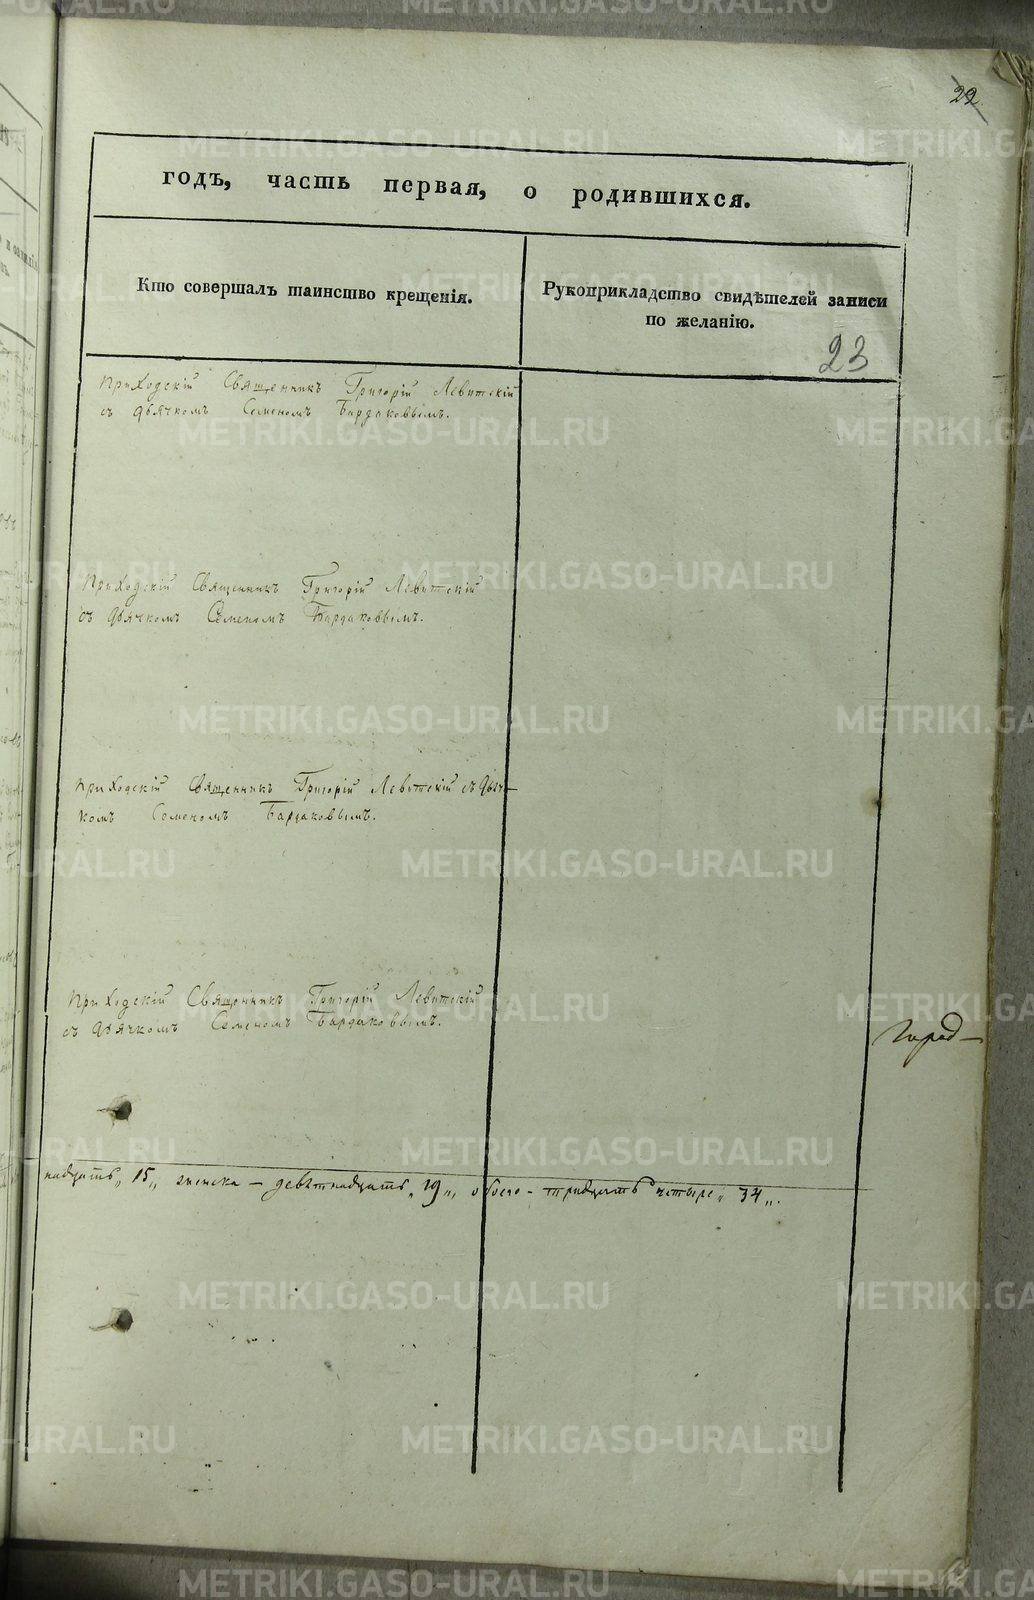 22
годъ, часть первая, о родившихся.
Кто совершалъ таинство крещенія.
Рукоприкладство свидѣтелей записи
по желанію.
23
Приходскій Священникъ Григорій Левитскій
съ дьячкомъ Семеномъ Бардаковымъ.
Приходскій Священникъ Григорій Левитскій
съ дьячкомъ Семеномъ Бардаковымъ.
Приходскій Священникъ Григорій Левитскій съ дьяч-
комъ Семеномъ Бардаковымъ.
Приходскій Священникъ Григорій Левитскій
съ дьячкомъ Семеномъ Бардаковымъ.
надцать „15„ женска – девѣтнадцать „19„, обоего – тридцать четыре „34„.
METRIKI.GASO-URAL.RU